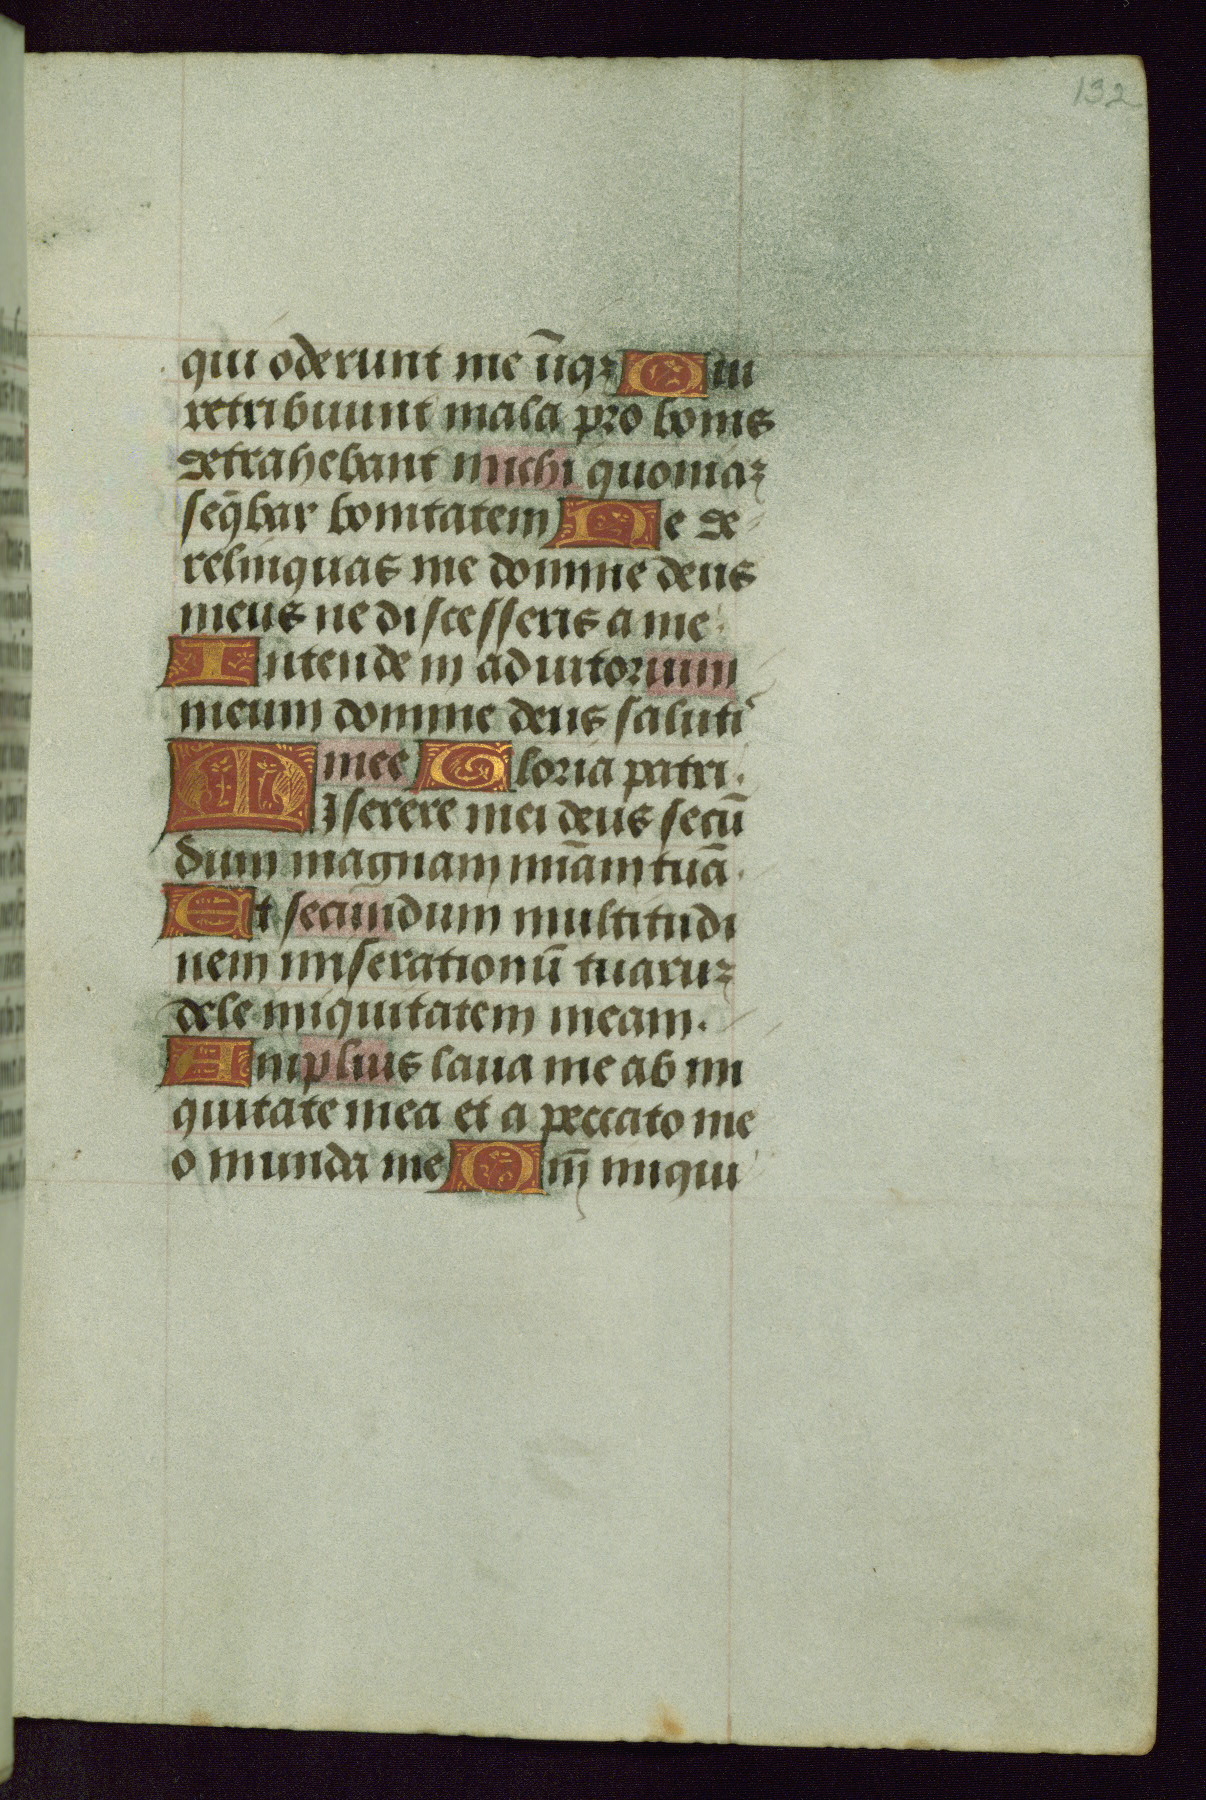 132
qui oderunt me iīqꝫ Qui
retribuunt mala pro bonis
detrahebant michi quoniaꝫ
seq̄bar bonitatem Ne de
relinquas me domine deus
meus ne discesseris a me.
Intende in adiutorium
meum domine deus saluti
mee Gloria patri.
Miserere mei deus secū
dum magnam mīam tuā.
Et secundum multitudi
nem miserationū tuaruꝫ
dele iniquitatem meam.
Amplius laua me ab ini
quitate mea et a peccato me
o munda me Qm̄ iniqui